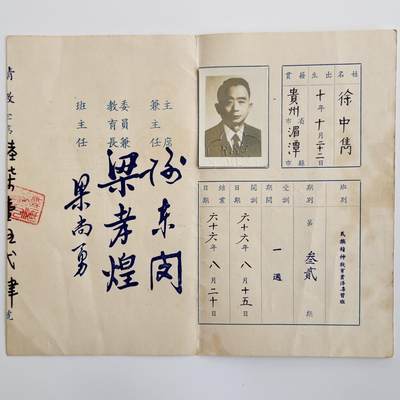 姓名
徐中雋
出生
十年十月二十二日
籍貫
貴州省市
湄潭縣市
班別
民族精神教育
期別
第叁貳期
受訓期間
一週
開訓日期
六十六年八月十五日
結業日期
六十六年八月二十日
主席兼主任
謝東閔
委員兼教育長
梁孝煌
班主任
梁尚勇
號